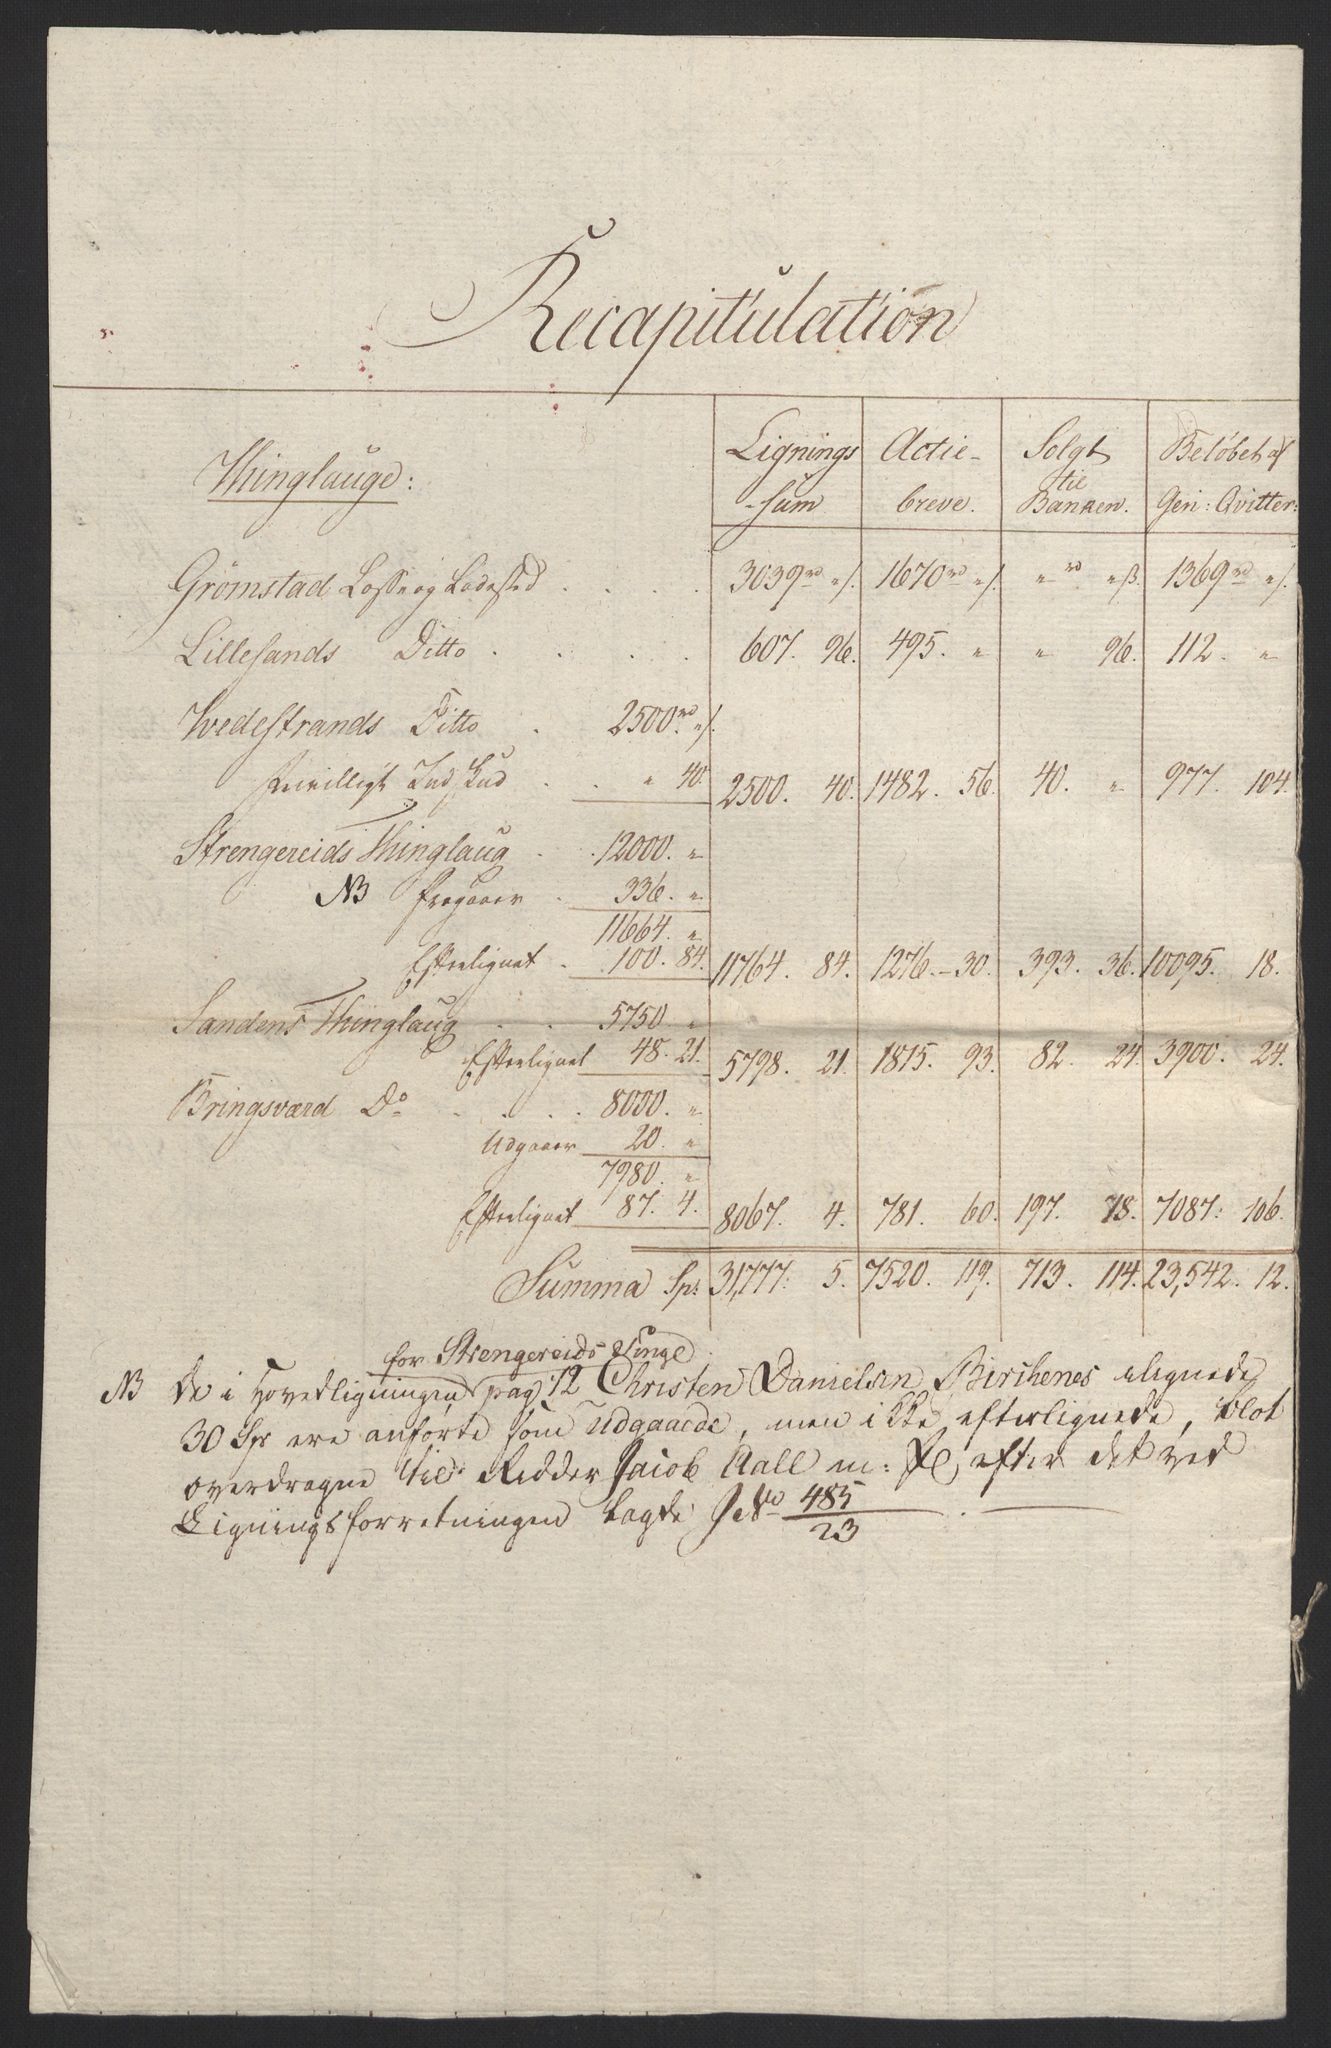 Recapitulation
Thinglauge: Lignings Actie- Solgt Beløbet af
-sum breve. til Banken. Gen: Qvitter:
Grømstad Losse og Ladested . . . . 3039 rd " s. 1670 rd " s. " rd " ß. 1369 rd " s.
Lillesands Ditto . . . . 607. 96. 495. " " 96. 112. "
Tvedestrands Ditto . 2500 rd " s.
frivilligt Indskud . . " 40. 2500. 40. 1482. 56. 40. " 977. 104.
Strengereids Thinglaug . . 12000. "
NB fragaaer . 336. "
11664. "
Efterlignet . 100. 84. 11764. 84. 1276. - 30. 393. 36. 10095. 18.
Sandens Thinglaug . . 5750 "
Efterlignet 48. 21. 5798. 21. 1815. 93. 82. 24. 3900. 24.
Bringsværd Do . . . . 8000. "
Udgaaer 20. "
7980. "
Efterlignet 87. 4. 8067. 4. 781. 60. 197. 78. 7087. 106.
Summa Sp: 31,777. 5. 7520. 119. 713. 114. 23,542. 12.
for Strengereids Tinge
NB de i Hovedligningen pag: 12 Christen Danielsen Birchenes ilignede
30 Spr ere anførte som Udgaaede, men ikke efterlignede, blot
overdragne til Ridder Jacob Aall efter det ved
Ligningsforretningen lagte 485
23